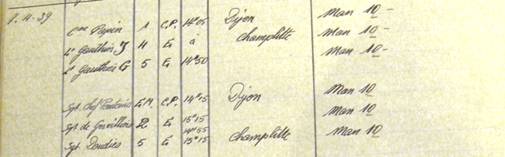 1.4.39
Cne Papin 1 C.P. 14h05 Dijon Man 10 -
Lt Gauthier J 4 E à Champlitte Man 10 -
Lt Gauthier G 5 E 14h50 Man 10 -
Sgt Chef E.M. C.P. 14h15 Dijon Man 10
Sgt de 2 E 15h15 Man 10
Sgt 5 E 14h55 15h15 Champlitte Man 10